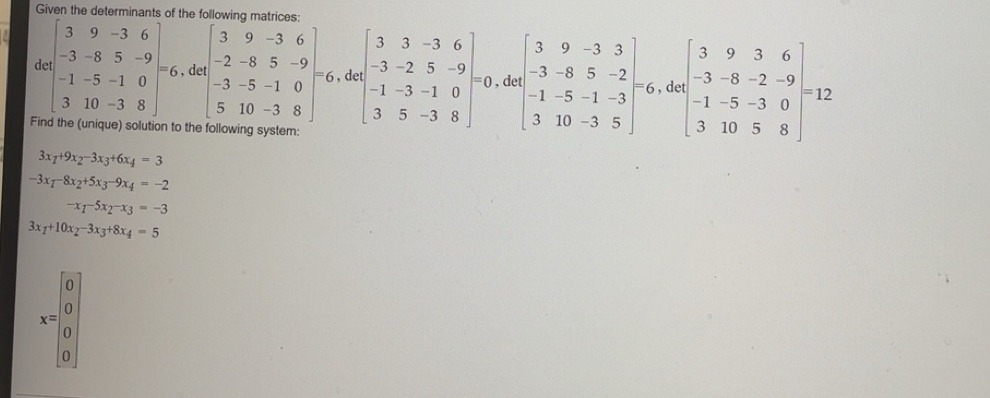 Given the determinants of the following matrices:
det [3 9 -3 6; -3 -8 5 -9; -1 -5 -1 0; 3 10 -3 8] =6, det [3 9 -3 6; -2 -8 5 -9; -3 -5 -1 0; 5 10 -3 8] =6, det [3 3 -3 6; -3 -2 5 -9; -1 -3 -1 0; 3 5 -3 8] =0, det [3 9 -3 3; -3 -8 5 -2; -1 -5 -1 -3; 3 10 -3 5] =6, det [3 9 3 6; -3 -8 -2 -9; -1 -5 -3 0; 3 10 5 8] =12
Find the (unique) solution to the following system:
3x₁+9x₂-3x₃+6x₄ = 3
-3x₁-8x₂+5x₃-9x₄ = -2
-x₁-5x₂-x₃ = -3
3x₁+10x₂-3x₃+8x₄ = 5
x= [0; 0; 0; 0]